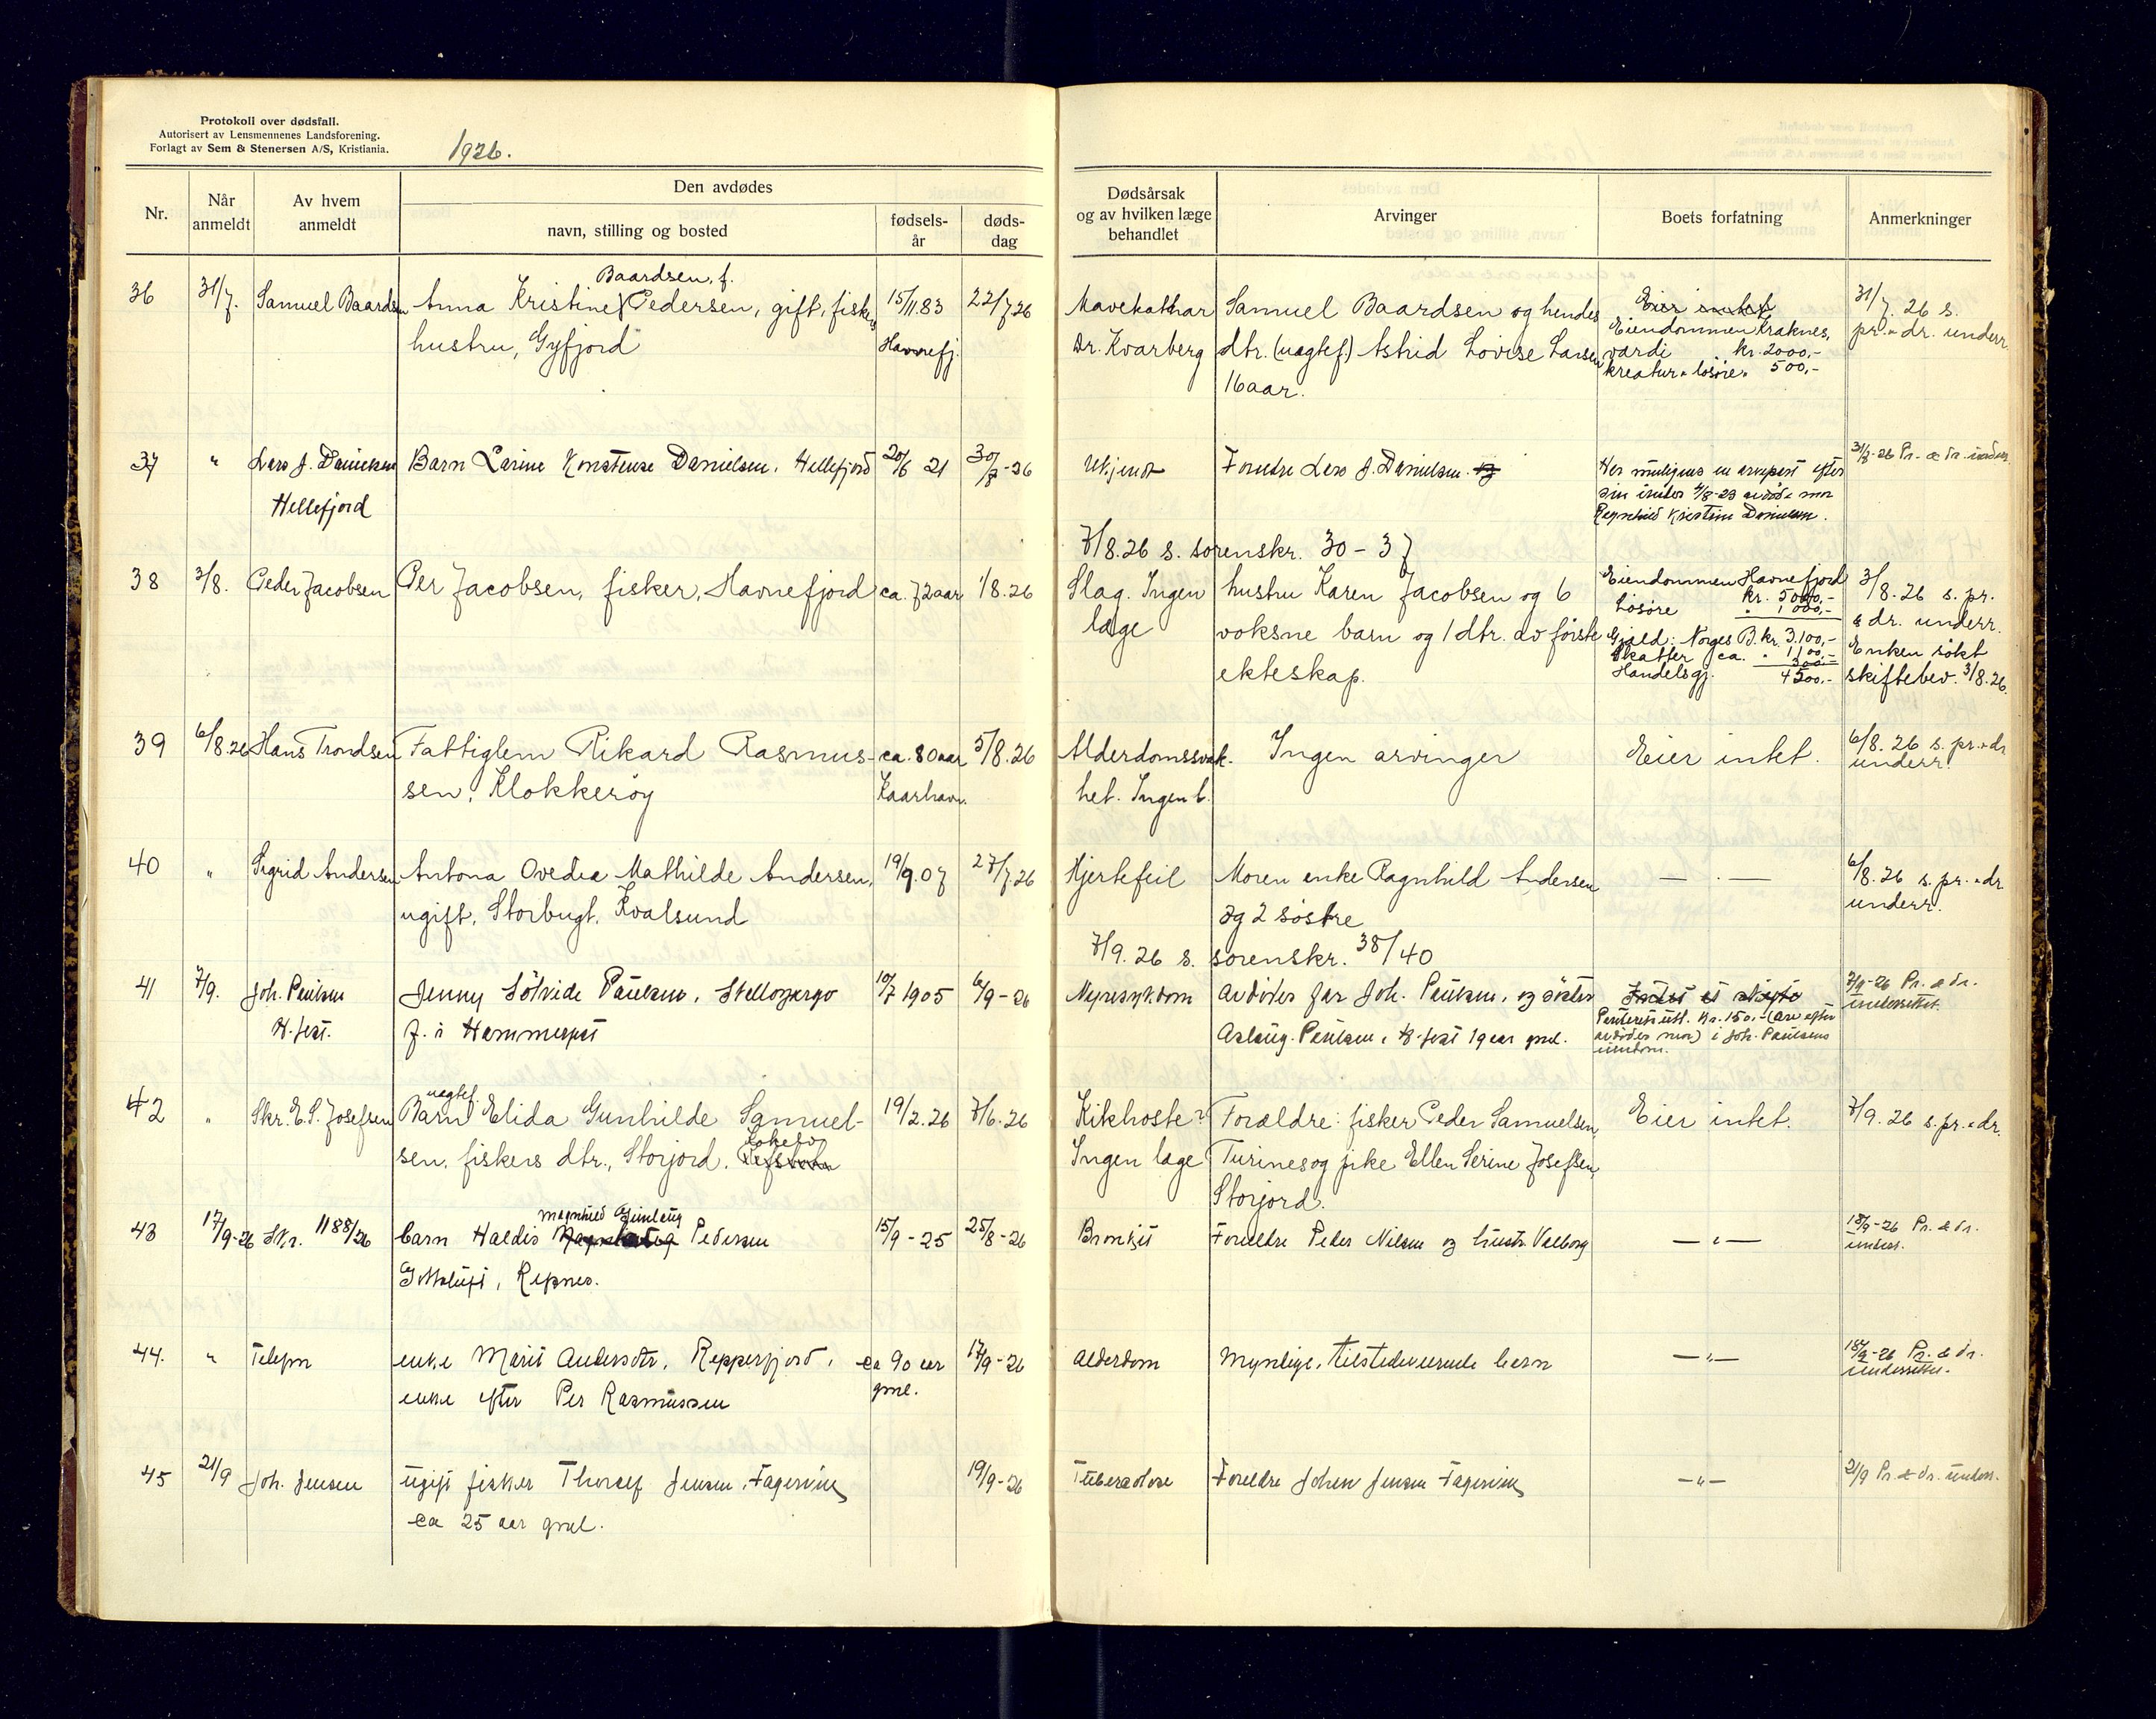 Protokoll over dødsfall.
Autorisert av Lensmennenes Landsforening.
Forlagt av Sem & Stenersen A/S, Kristiania.
1926.
Nr.
Når anmeldt
Av hvem anmeldt
Den avdødes
navn, stilling og bosted
fødsels-år
døds-dag
Dødsårsak og av hvilken læge behandlet
Arvinger
Boets forfatning
Anmerkninger
Baardsen, f.
36 31/7. Samuel Baardsen Anna Kristine Pedersen, gift, fiskers 15/11.83 22/7.26 Mavekathar Samuel Baardsen og hendes Eier intet 31/7.26 s.
hustru, Gyfjord Havnefj. Dr. Kvarberg dtr. (uægtef.) Astrid Lovise Larsen Eiendommen Kraknes, pr. & dr. underr.
16 aar. værdi kr. 2000,-
kreatur & løsøre " 500,-
37 " Lars J. Danielsen Barn Larine Konstense Danielsen, Hellefjord 20/6 21 30/7-26 Ukjendt Forældre Lars J. Danielsen 31/8-26 Pr. & dr. underr.
Hellefjord Har muligens en arvepart efter
sin under 4/8-23 avdøde mor
Ragnhild Kristine Danielsen.
7/8.26 s. sorenskr. 30-37
38 3/8. Peder Jacobsen Per Jacobsen, fisker, Havnefjord ca. 72 aar 1/8.26 Slag. Ingen hustru Karen Jacobsen og 6 Eiendommen Havnefjord 3/8.26 s. pr.
læge voksne barn og 1 dtr. av første kr. 5000,- & dr. underr.
ekteskap. Løsøre " 1000,- Enken søkt
Gjæld: Norges B. kr. 3.100,- skiftebev. 3/8.26.
Skatter ca. " 1100,-
Handelsgj. 300,-
4500,-
39 6/8.26 Hans Trondsen Fattiglem Rikard Rasmus- ca. 80 aar 5/8.26 Alderdomssvak- Ingen arvinger Eier intet. 6/8.26 s. pr. & dr
sen, Klokkerøy Kaarhavn. het. Ingen l. underr.
40 " Sigrid Andersen Antona Ovedia Mathilde Andersen, 19/9.07 27/7.26 Hjertefeil Moren enke Ragnhild Andersen — " — 6/8.26 s. pr. & dr
ugift, Storbugt, Kvalsund og 2 søstre underr.
7/9.26 s. sorenskr. 38/40
41 7/9. Joh. Paulsen Jenny Sölvide Paulsen, 10/7 1905 6/9-26 Nyresykdom avdødes far Joh. Paulsen, og søster 7/9-26 Pr. & dr.
H.fest. f. i Hammerfest Aslaug Paulsen, H.fest 19 aar gml. kr. 150,- (arv efter underrettet.
avdødes mor) i Joh. Paulsens
uægtef.
42 " Skr. E.S. Josefsen Barn Elida Gunhilde Samuel- 19/2.26 7/6.26 Kikhoste? Forældre: fisker Peder Samuelsen, Eier intet. 7/9.26 s. pr. & dr.
sen, fiskers dtr., Storjord. Ingen læge Turines og pike Ellen Serine Josefsen,
Storjord.
Magnhild Gunlaug
43 17/9-26 Skr. 1188/26 barn Haldis Pedersen 15/9-25 25/8-26 Bronkit Forældre Peder Nilsen og hustr. Valborg — " — 18/9-26 Pr. & dr.
Repnes. underr.
44. " Telefon enke Marit Andersdtr, Repperfjord, ca 90 aar 17/9-26 Alderdom Myndige, tilstedeværende barn — " — 18/9-26 Pr. & dr.
enke efter Per Rasmussen gml. underrettet.
45 21/9 Joh. Jensen ugift fisker Tholef Jensen, Fagervik 19/9-26 Tuberculose Forældre Johan Jensen Fagervik — " — 21/9 Pr. & dr. underr.
ca 25 aar gml.